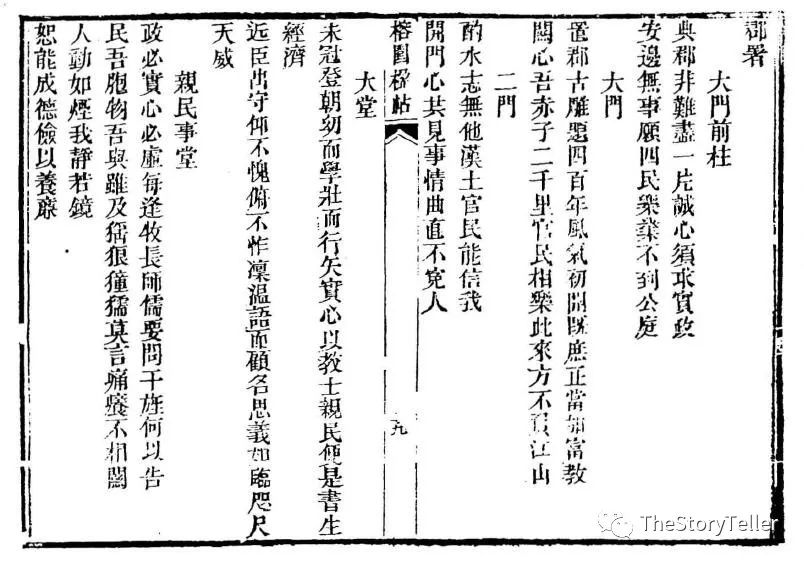 郡署
大門前柱
典郡非難盡一片誠心須求實政
安邊無事願四民衆業不到公庭
大門
置郡古雕題四百年風氣初開既庶正當加富教
關心吾赤子二千里官民相樂此來方不負江山
二門
酌水志無他漢土官民能信我
開門心共見事情曲直不寃人
榕園楹帖
九
大堂
未冠登朝幼而學壯而行矢實心以教士親民便是書生
經濟
近臣出守仰不愧俯不怍凜溫語而顧名思義如臨咫尺
天威
親民事堂
政必實心必虛每逢牧長師儒要問干旌何以告
民吾胞物吾與雖及猺狼獞獞莫言痛癢不相關
人動如煙我靜若鏡
恕能成德儉以養廉
TheStoryTeller